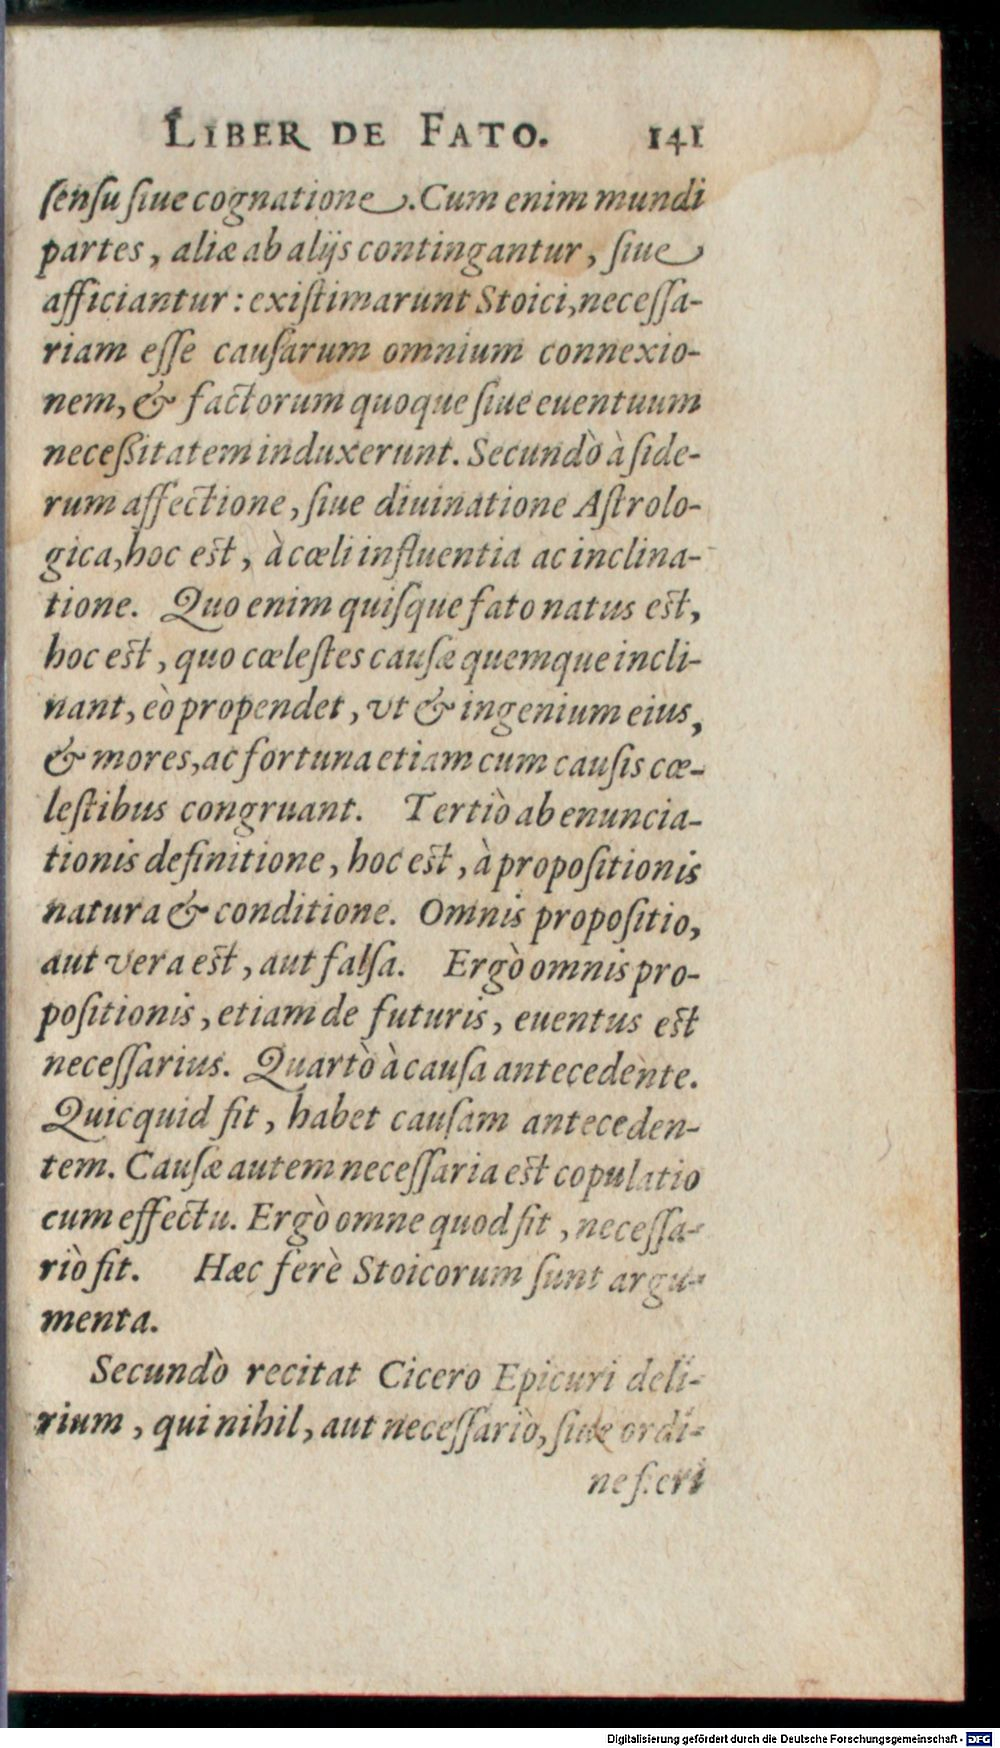 LIBER DE FATO. 141
ſenſu ſiue cognatione. Cum enim mundi
partes, aliæ ab alijs contingantur, ſiue
afficiantur: exiſtimarunt Stoici, neceſſa-
riam eſſe cauſarum omnium connexio-
nem, & factorum quoque ſiue euentuum
neceßitatem induxerunt. Secundò à ſide-
rum affectione, ſiue diuinatione Aſtrolo-
gica, hoc eſt, à cœli influentia ac inclina-
tione. Quo enim quiſque fato natus eſt,
hoc eſt, quo cœleſtes cauſæ quemque incli-
nant, eò propendet, vt & ingenium eius,
& mores, ac fortuna etiam cum cauſis cœ-
leſtibus congruant. Tertiò ab enuncia-
tionis definitione, hoc eſt, à propoſitionis
natura & conditione. Omnis propoſitio,
aut vera eſt, aut falſa. Ergò omnis pro-
poſitionis, etiam de futuris, euentus eſt
neceſſarius. Quartò à cauſa antecedente.
Quicquid fit, habet cauſam anteceden-
tem. Cauſæ autem neceſſaria eſt copulatio
cum effectu. Ergò omne quod fit, neceſſa-
riò fit. Hæc ferè Stoicorum ſunt argu-
menta.
Secundò recitat Cicero Epicuri deli-
rium, qui nihil, aut neceſſariò, ſiue ordi-
ne fieri
Digitalisierung gefördert durch die Deutsche Forschungsgemeinschaft - DFG